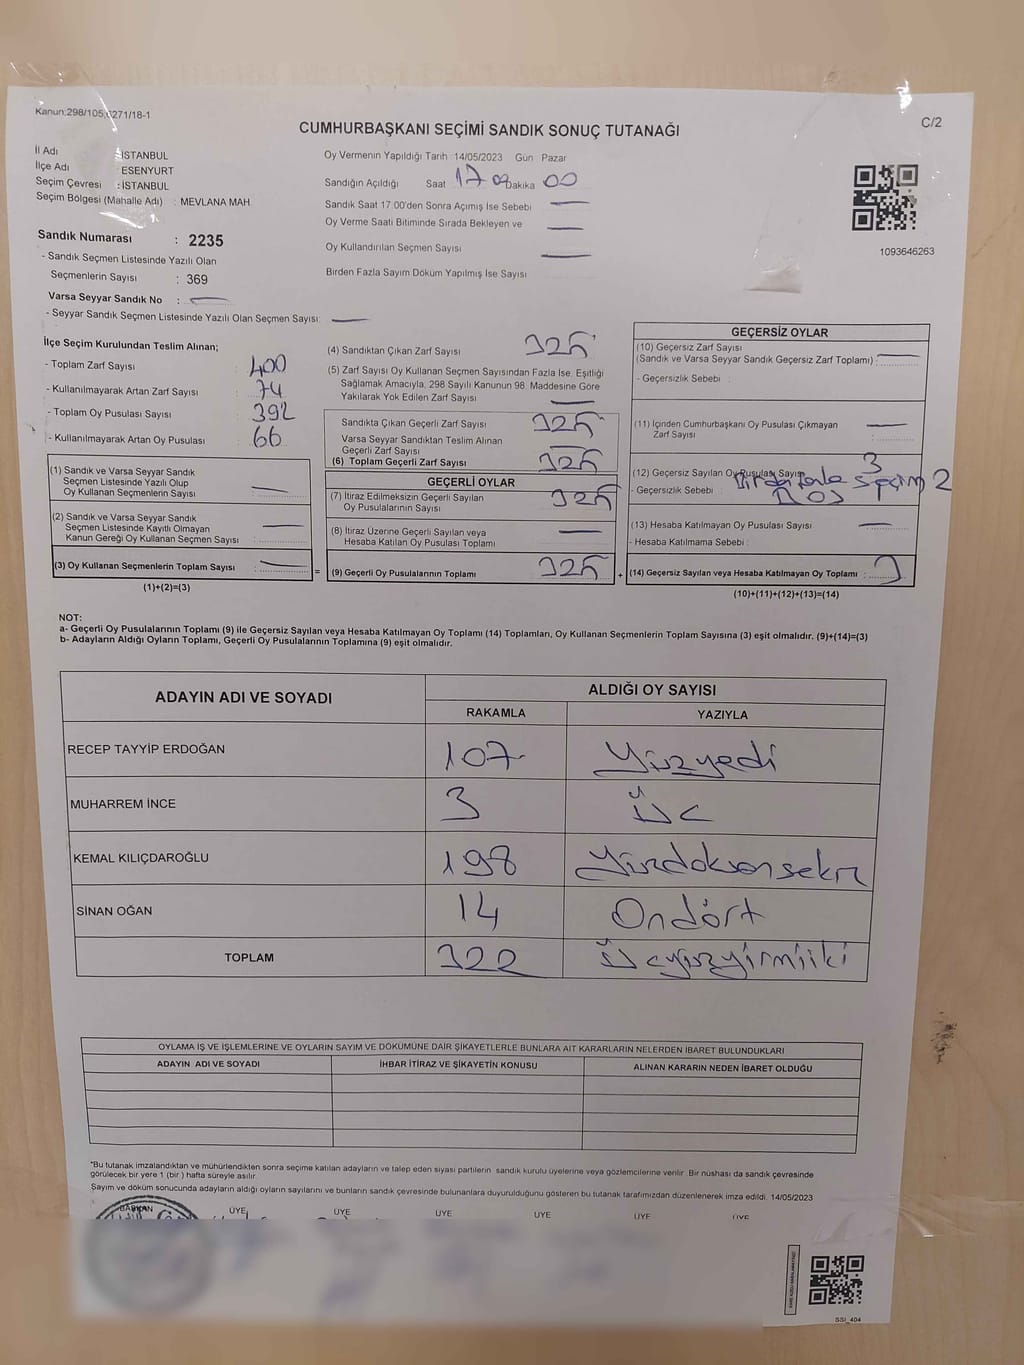 Kanun:298/105,6271/18-1
C/2
CUMHURBAŞKANI SEÇİMİ SANDIK SONUÇ TUTANAĞI
İl Adı : İSTANBUL
İlçe Adı : ESENYURT
Seçim Çevresi : İSTANBUL
Seçim Bölgesi (Mahalle Adı) : MEVLANA MAH.
Sandık Numarası : 2235
- Sandık Seçmen Listesinde Yazılı Olan
Seçmenlerin Sayısı : 369
Varsa Seyyar Sandık No : —
- Seyyar Sandık Seçmen Listesinde Yazılı Olan Seçmen Sayısı: —
Oy Vermenin Yapıldığı Tarih 14/05/2023 Gün Pazar
Sandığın Açıldığı Saat 17 Dakika 00
Sandık Saat 17.00'den Sonra Açımış İse Sebebi —
Oy Verme Saati Bitiminde Sırada Bekleyen ve —
Oy Kullandırılan Seçmen Sayısı —
Birden Fazla Sayım Döküm Yapılmış İse Sayısı
1093646263
İlçe Seçim Kurulundan Teslim Alınan;
- Toplam Zarf Sayısı : 400
- Kullanılmayarak Artan Zarf Sayısı : 74
- Toplam Oy Pusulası Sayısı : 392
- Kullanılmayarak Artan Oy Pusulası : 66
(1) Sandık ve Varsa Seyyar Sandık
Seçmen Listesinde Yazılı Olup
Oy Kullanan Seçmenlerin Sayısı : —
(2) Sandık ve Varsa Seyyar Sandık
Seçmen Listesinde Kayıtlı Olmayan
Kanun Gereği Oy Kullanan Seçmen Sayısı : —
(3) Oy Kullanan Seçmenlerin Toplam Sayısı : — =
(1)+(2)=(3)
(4) Sandıktan Çıkan Zarf Sayısı 325
(5) Zarf Sayısı Oy Kullanan Seçmen Sayısından Fazla İse, Eşitliği
Sağlamak Amacıyla, 298 Sayılı Kanunun 98. Maddesine Göre
Yakılarak Yok Edilen Zarf Sayısı —
Sandıkta Çıkan Geçerli Zarf Sayısı 325
Varsa Seyyar Sandıktan Teslim Alınan
Geçerli Zarf Sayısı —
(6) Toplam Geçerli Zarf Sayısı 325
GEÇERLİ OYLAR
(7) İtiraz Edilmeksizin Geçerli Sayılan
Oy Pusulalarının Sayısı 325
(8) İtiraz Üzerine Geçerli Sayılan veya
Hesaba Katılan Oy Pusulası Toplamı —
(9) Geçerli Oy Pusulalarının Toplamı 325 +
GEÇERSİZ OYLAR
(10) Geçersiz Zarf Sayısı
(Sandık ve Varsa Seyyar Sandık Geçersiz Zarf Toplamı) : —
- Geçersizlik Sebebi :
(11) İçinden Cumhurbaşkanı Oy Pusulası Çıkmayan
Zarf Sayısı —
(12) Geçersiz Sayılan Oy Pusulası Sayısı 3
- Geçersizlik Sebebi :
(13) Hesaba Katılmayan Oy Pusulası Sayısı —
- Hesaba Katılmama Sebebi :
(14) Geçersiz Sayılan veya Hesaba Katılmayan Oy Toplamı : 3
(10)+(11)+(12)+(13)=(14)
NOT:
a- Geçerli Oy Pusulalarının Toplamı (9) ile Geçersiz Sayılan veya Hesaba Katılmayan Oy Toplamı (14) Toplamları, Oy Kullanan Seçmenlerin Toplam Sayısına (3) eşit olmalıdır. (9)+(14)=(3)
b- Adayların Aldığı Oyların Toplamı, Geçerli Oy Pusulalarının Toplamına (9) eşit olmalıdır.
ADAYIN ADI VE SOYADI ALDIĞI OY SAYISI
RAKAMLA YAZIYLA
RECEP TAYYİP ERDOĞAN 107 Yüzyedi
MUHARREM İNCE 3 Üç
KEMAL KILIÇDAROĞLU 198 Yüzdoksansekiz
SİNAN OĞAN 14 Ondört
TOPLAM 322 Üçyüzyirmiiki
OYLAMA İŞ VE İŞLEMLERİNE VE OYLARIN SAYIM VE DÖKÜMÜNE DAİR ŞİKAYETLERLE BUNLARA AİT KARARLARIN NELERDEN İBARET BULUNDUKLARI
ADAYIN ADI VE SOYADI İHBAR İTİRAZ VE ŞİKAYETİN KONUSU ALINAN KARARIN NEDEN İBARET OLDUĞU
*Bu tutanak imzalandıktan ve mühürlendikten sonra seçime katılan adayların ve talep eden siyasi partilerin sandık kurulu üyelerine veya gözlemcilerine verilir. Bir nüshası da sandık çevresinde
görülecek bir yere 1 (bir) hafta süreyle asılır.
Sayım ve döküm sonucunda adayların aldığı oyların sayılarını ve bunların sandık çevresinde bulunanlara duyurulduğunu gösteren bu tutanak tarafımızdan düzenlenerek imza edildi. 14/05/2023
BAŞKAN ÜYE ÜYE ÜYE ÜYE ÜYE ÜYE
SSİ_404